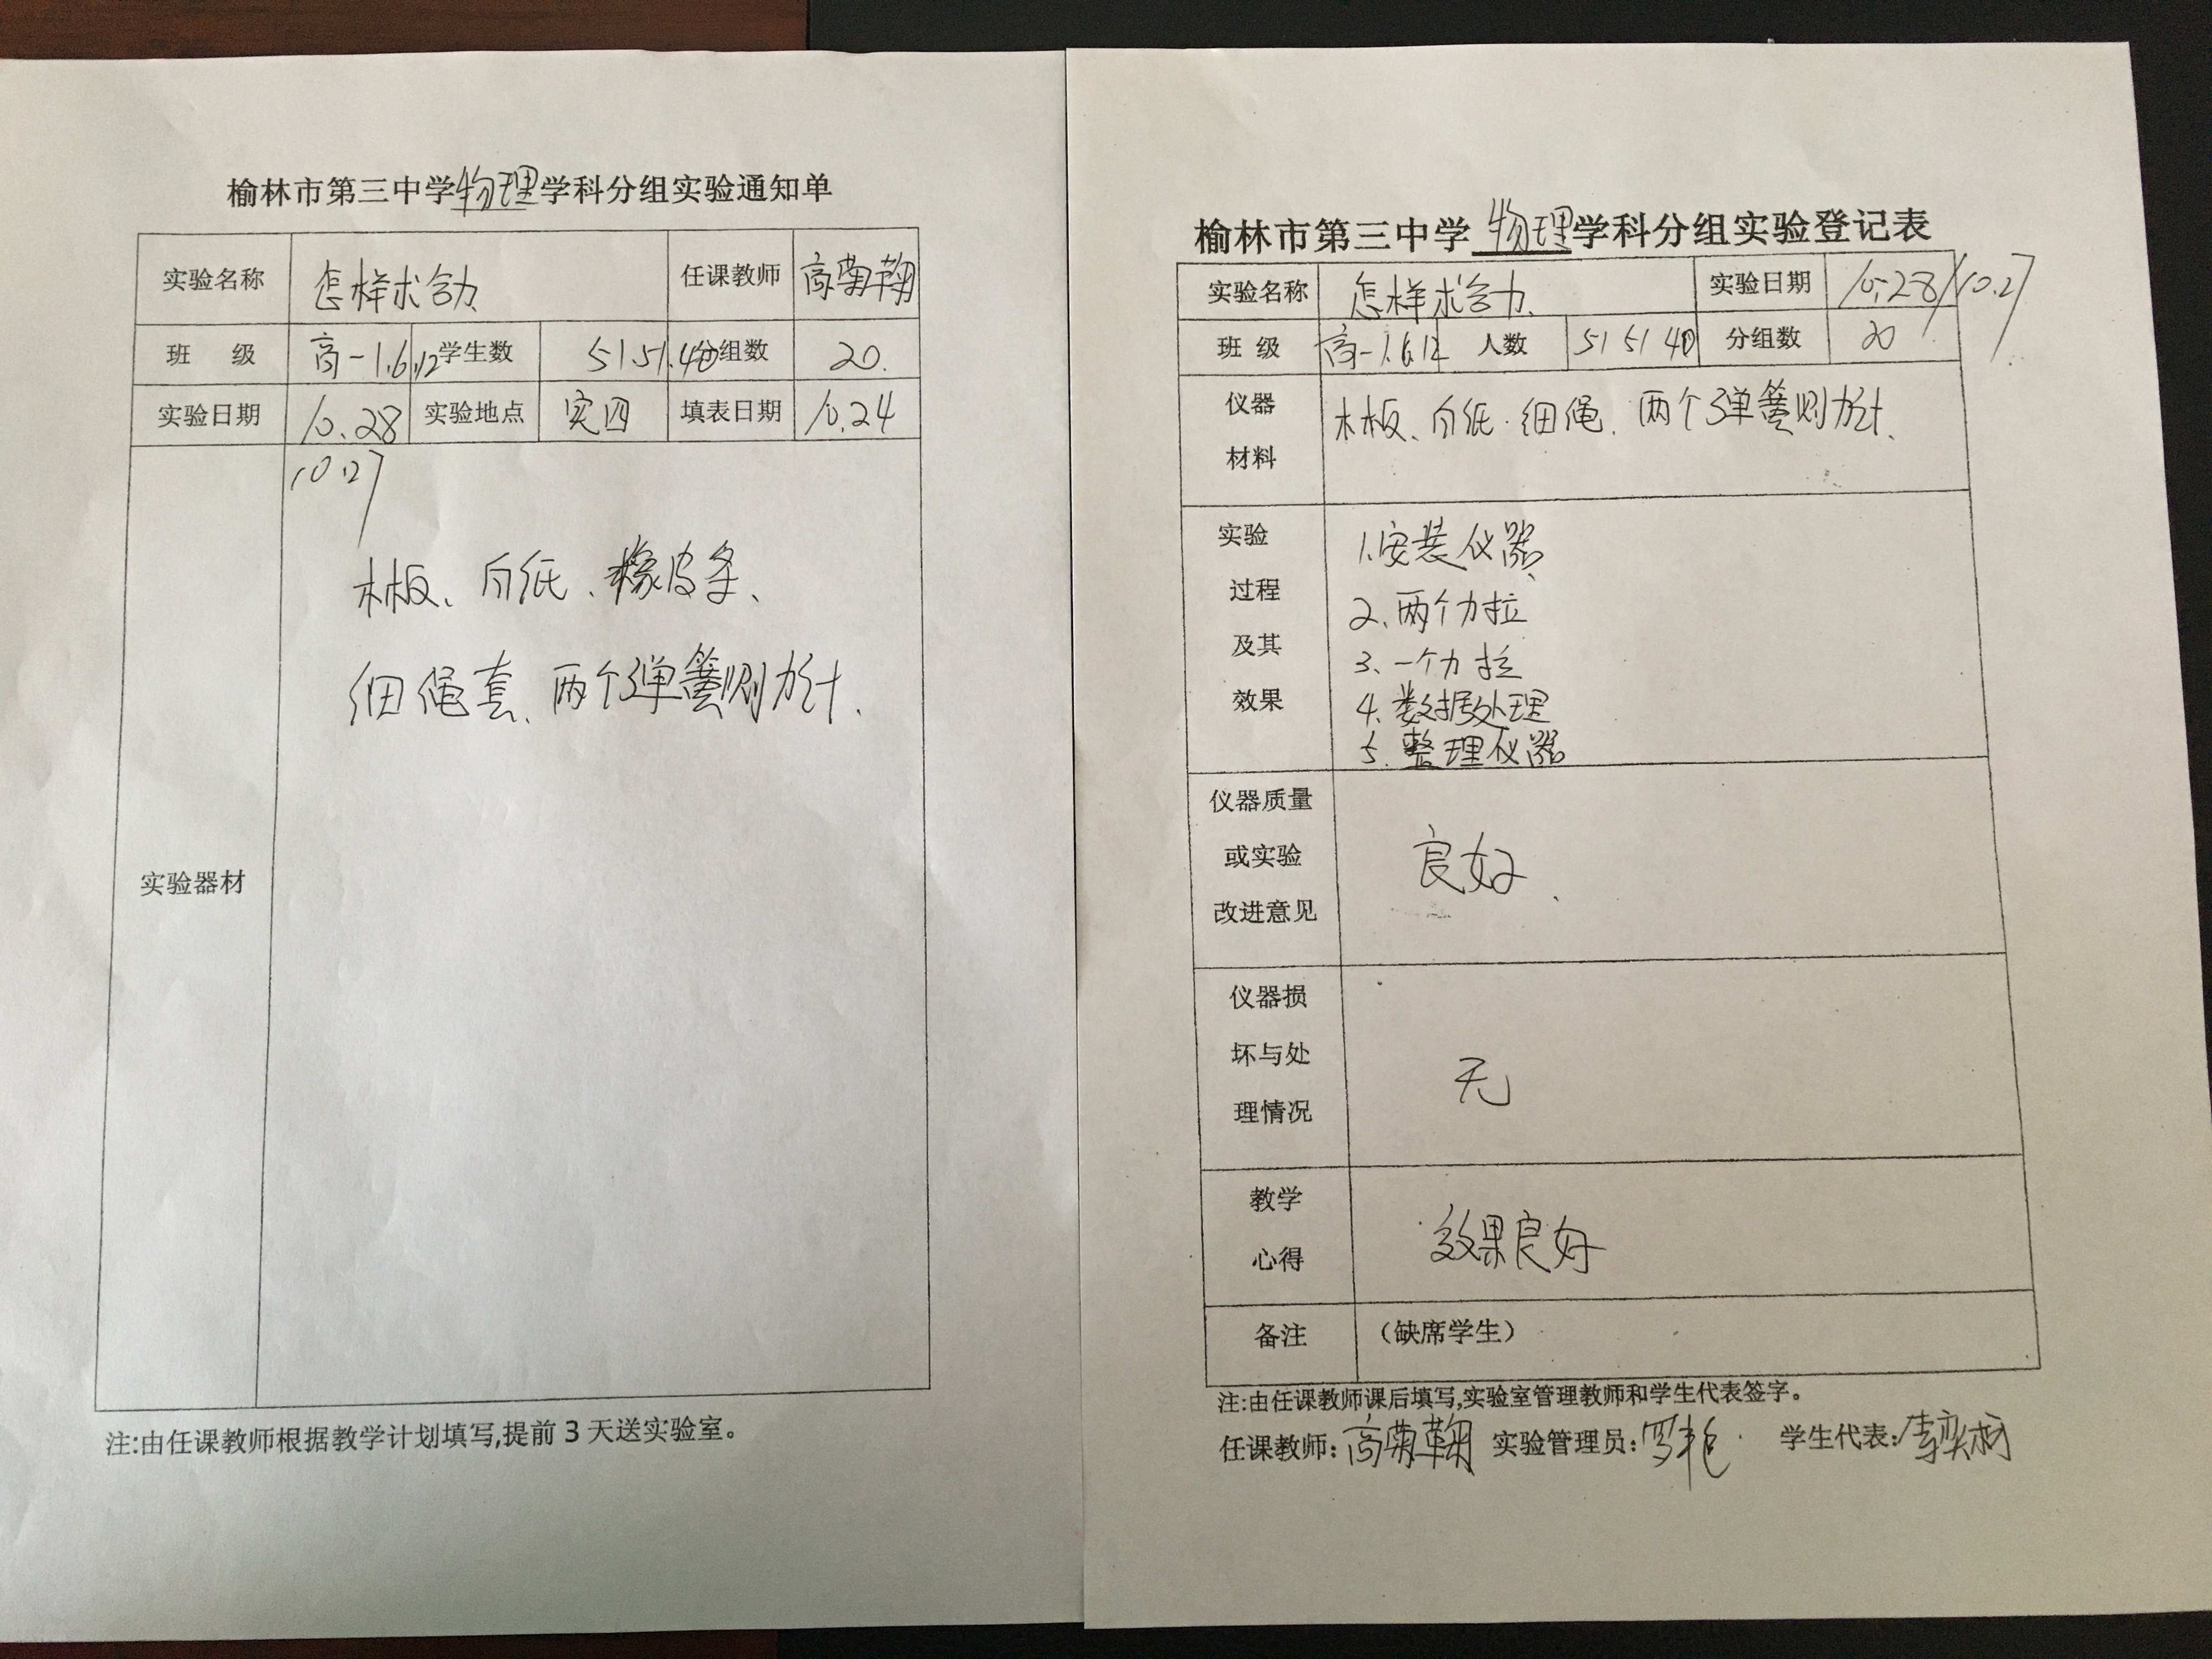 榆林市第三中学物理学科分组实验通知单
实验名称 怎样求合力 任课教师 高菊翱
班 级 高一1.6.12 学生数 51.51.40 分组数 20.
实验日期 10.28 实验地点 实四 填表日期 10.24
10.27
木板、白纸、橡皮条、
细绳套、两个弹簧测力计.
实验器材
注:由任课教师根据教学计划填写,提前3天送实验室。
榆林市第三中学物理学科分组实验登记表
实验名称 怎样求合力 实验日期 10.28/10.27
班 级 高一1.6.12 人数 51 51 40 分组数 20
仪器 木板、白纸.细绳.两个弹簧测力计、
材料
实验 1.安装仪器
过程 2、两个力拉
及其 3、一个力拉
效果 4.数据处理
5.整理仪器
仪器质量
或实验 良好.
改进意见
仪器损
坏与处 无
理情况
教学 效果良好
心得
备注 (缺席学生)
注:由任课教师课后填写,实验室管理教师和学生代表签字。
任课教师: 实验管理员: 学生代表: